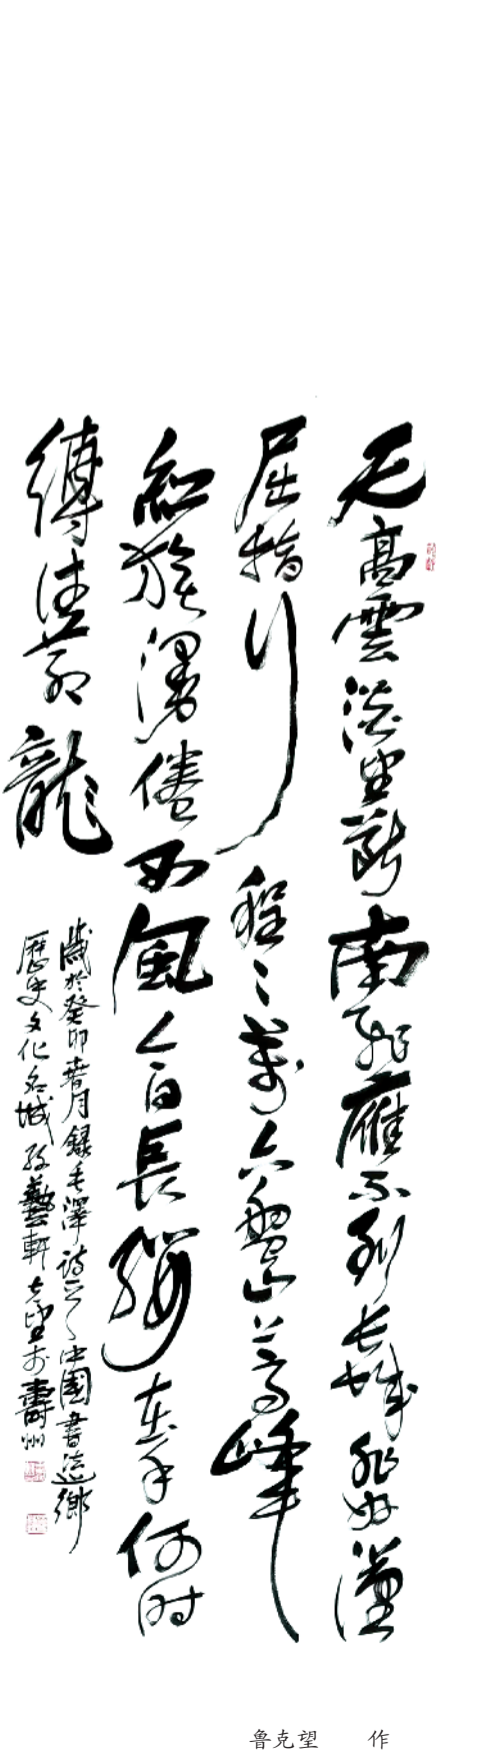 天高雲淡望斷南飛雁不到長城非好漢
屈指行程二萬六盤山上高峰
紅旗漫倦西風今日長纓在手何時
縛住蒼龍
歲於癸卯春月錄毛澤詩之〻中國書法鄉
歷史文化名城 藝軒克望於壽州
鲁克望 作